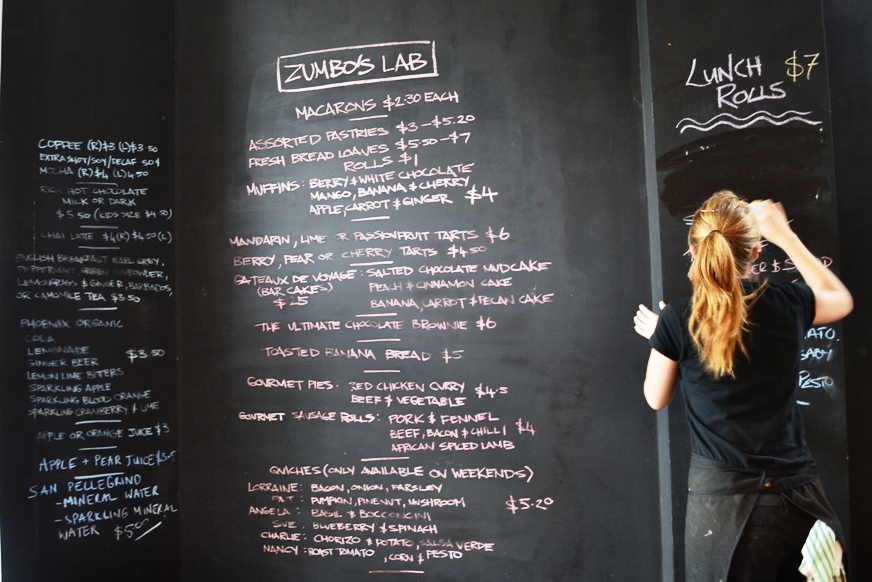 COFFEE (R)$3 (L)$3.50
EXTRA SHOT/SOY/DECAF 50¢
MOCHA (R)$4 (L)4.50
RICH HOT CHOCOLATE
MILK OR DARK
$5.50 (KIDS SIZE $4.50)
CHAI LATTE $4(R)$4.50(L)
ENGLISH BREAKFAST EARL GREY,
PEPPERMINT, GREEN
LEMONGRASS & GINGER,
OR CAMOMILE TEA $3.50
PHOENIX ORGANIC
COLA
LEMONADE
GINGER BEER
LEMON LIME BITTERS
SPARKLING APPLE
SPARKLING BLOOD ORANGE
SPARKLING CRANBERRY & LIME
$3.50
APPLE OR ORANGE JUICE $3
APPLE + PEAR JUICE
SAN PELLEGRINO
-MINERAL WATER
-SPARKLING MINERAL
WATER $5
ZUMBO'S LAB
MACARONS $2.30 EACH
ASSORTED PASTRIES $3-$5.20
FRESH BREAD LOAVES $5.50-$7
ROLLS $1
MUFFINS: BERRY & WHITE CHOCOLATE
MANGO, BANANA & CHERRY
APPLE, CARROT & GINGER $4
MANDARIN, LIME OR PASSIONFRUIT TARTS $6
BERRY, PEAR OR CHERRY TARTS $4.50
GATEAUX DE VOYAGE: SALTED CHOCOLATE MUDCAKE
(BAR CAKES) PEACH & CINNAMON CAKE
$25 BANANA, CARROT & PECAN CAKE
THE ULTIMATE CHOCOLATE BROWNIE $6
TOASTED BANANA BREAD $5
GOURMET PIES: RED CHICKEN CURRY
BEEF & VEGETABLE $4.5
GOURMET SAUSAGE ROLLS: PORK & FENNEL
BEEF, BACON & CHILLI $4
AFRICAN SPICED LAMB
QUICHES (ONLY AVAILABLE ON WEEKENDS)
LORRAINE: BACON, ONION, PARSLEY
PAT: PUMPKIN, PINENUT, MUSHROOM $5.20
ANGELA: BASIL & BOCCONCINI
SUE: BLUEBERRY & SPINACH
CHARLIE: CHORIZO & POTATO, SALSA VERDE
NANCY: ROAST TOMATO, CORN & PESTO
LUNCH $7
ROLLS
PESTO